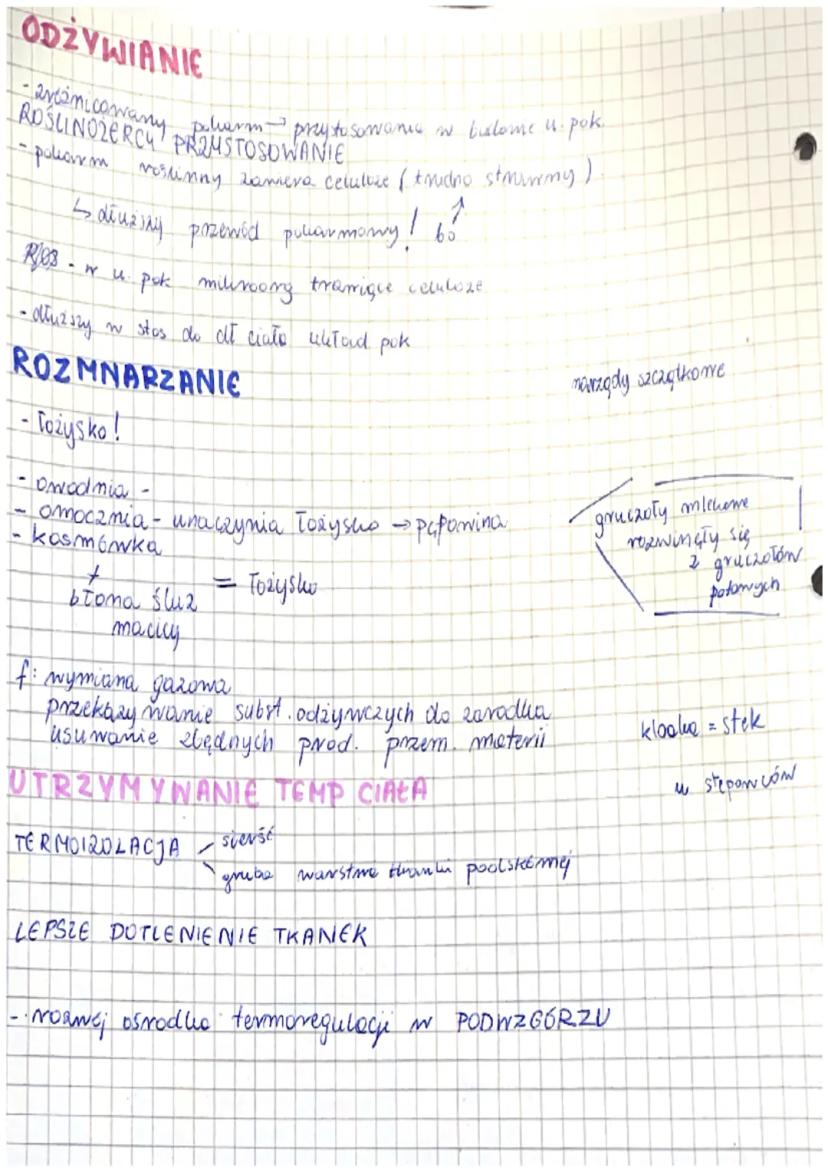 ODŻYWIANIE
- zróżnicowany pokarm → przystosowania w budowie u. pok.
ROŚLINOŻERCY PRZYSTOSOWANIE
- pokarm roślinny zawiera celulozę (trudno strawny)
↳ dłuższy przewód pokarmowy! bo ↑
- w u. pok mikroorg trawiące celulozę
- dłuższy w stos do dł ciała układ pok
ROZMNARZANIE
narządy szczątkowe
- łożysko!
- owodnia -
- omocznia - unaczynia łożysko → pępowina
- kosmówka
+
błona śluz
macicy
= łożysko
gruczoły mleczne
rozwinęły się
z gruczołów
potowych
f: wymiana gazowa
przekazywanie subst. odżywczych do zarodka
usuwanie zbędnych prod. przem. materii
kloaka = stek
u stekowców
UTRZYMYWANIE TEMP CIAŁA
TERMOIZOLACJA sierść
gruba warstwa tkanki podskórnej
LEPSZE DOTLENIENIE TKANEK
- rozwój ośrodka termoregulacji w PODWZGÓRZU